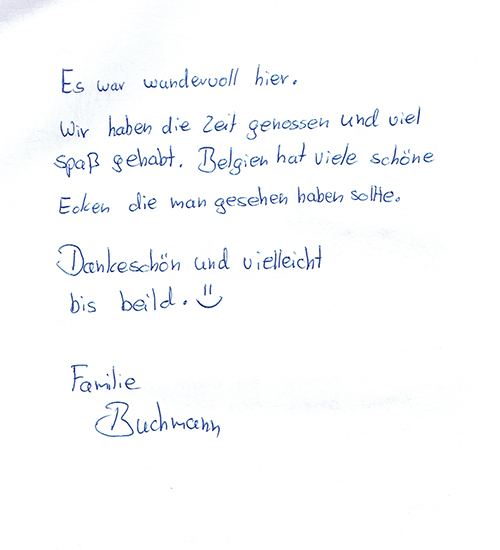 Es war wundervoll hier.
Wir haben die Zeit genossen und viel
spaß gehabt. Belgien hat viele schöne
Ecken die man gesehen haben sollte.
Dankeschön und vielleicht
bis beild.
Familie
Buchmann